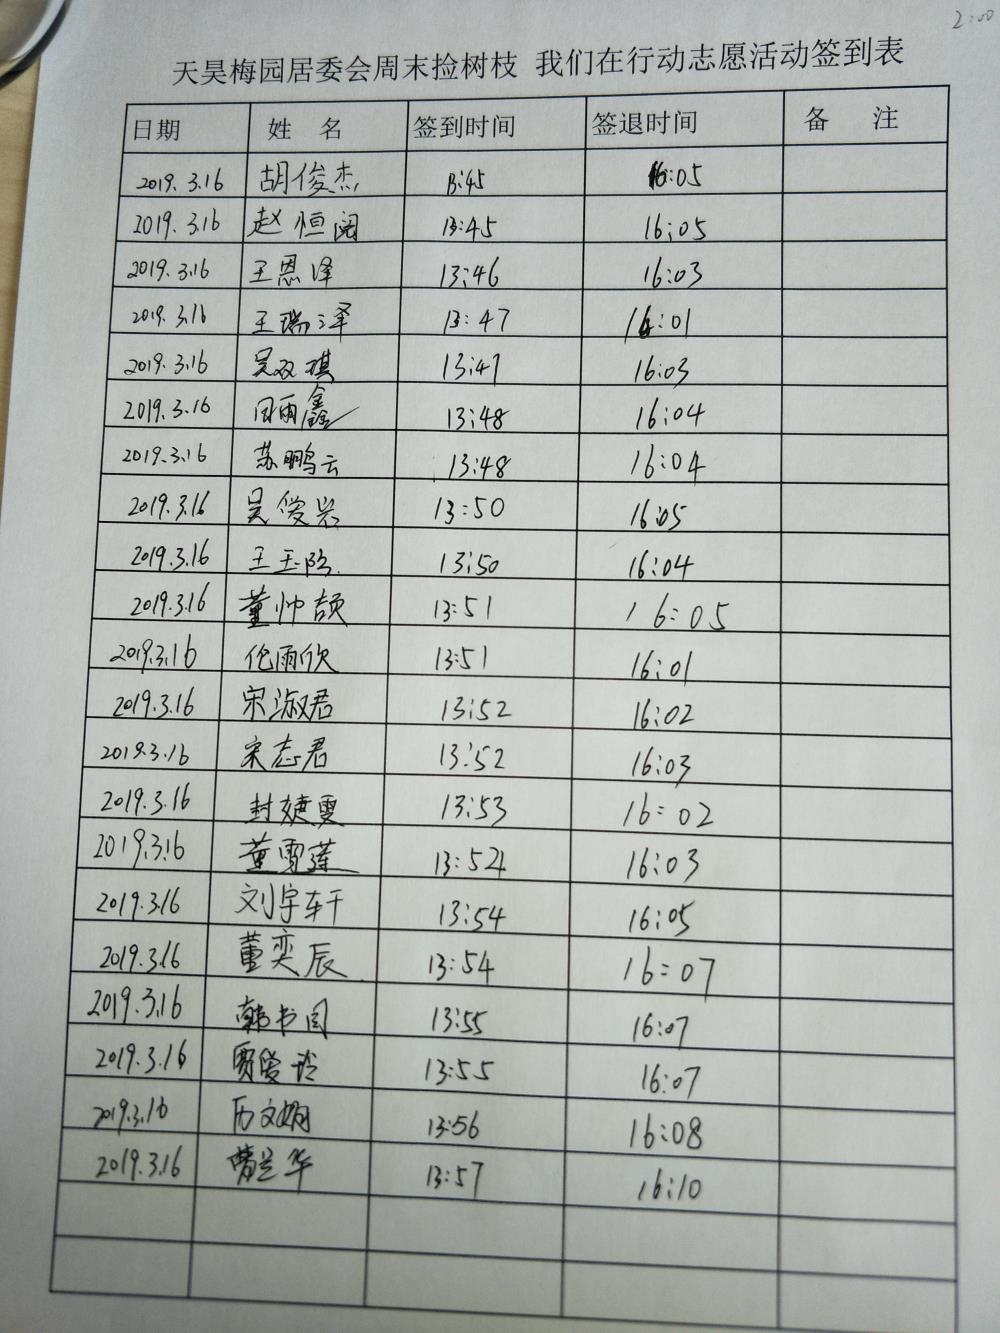 2:00
天昊梅园居委会周末捡树枝 我们在行动志愿活动签到表
日期 姓 名 签到时间 签退时间 备 注
2019.3.16 胡俊杰 13:45 16:05
2019.3.16 赵恒阔 13:45 16:05
2019.3.16 王恩泽 13:46 16:03
2019.3.16 王瑞泽 13:47 16:01
2019.3.16 吴双琪 13:47 16:03
2019.3.16 雨鑫 13:48 16:04
2019.3.16 苏鹏云 13:48 16:04
2019.3.16 吴俊岩 13:50 16:05
2019.3.16 王玉 13:50 16:04
2019.3.16 董帅颉 13:51 16:05
2019.3.16 伦雨欣 13:51 16:01
2019.3.16 宋淑君 13:52 16:02
2019.3.16 宋志君 13:52 16:03
2019.3.16 封婕雯 13:53 16:02
2019.3.16 董雪莲 13:54 16:03
2019.3.16 刘宇轩 13:54 16:05
2019.3.16 董奕辰 13:54 16:07
2019.3.16 韩书 13:55 16:07
2019.3.16 贾爱玲 13:55 16:07
2019.3.16 历文娟 13:56 16:08
2019.3.16 曹兰华 13:57 16:10